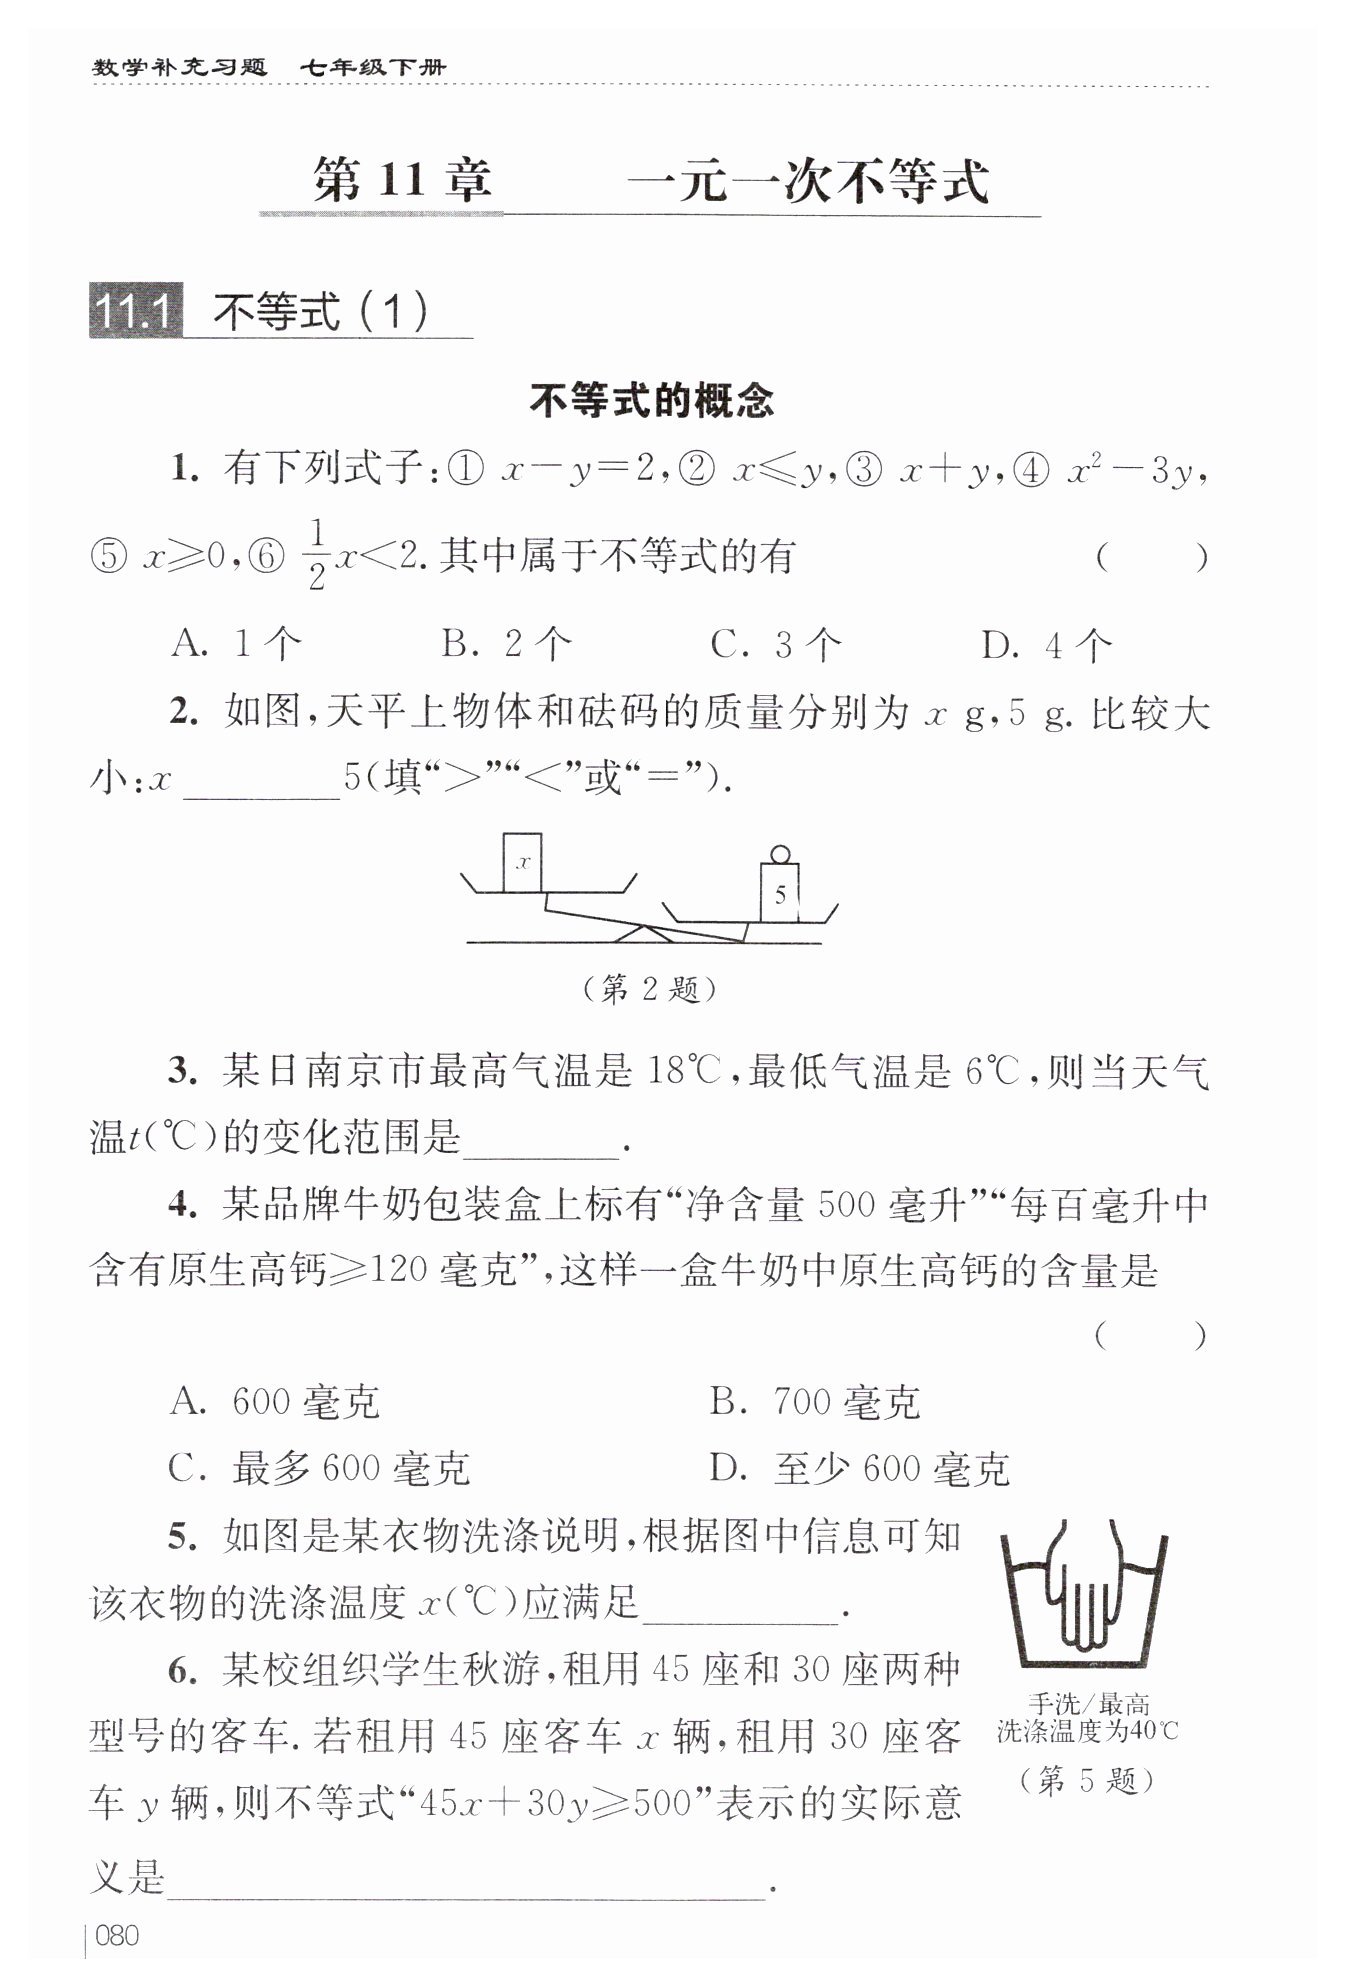 数学补充习题 七年级下册
第 11 章 一元一次不等式
11.1 不等式(1)
不等式的概念
1. 有下列式子:① x－y＝2,② x≤y,③ x＋y,④ x²－3y,
⑤ x≥0,⑥ 1/2x＜2. 其中属于不等式的有 ( )
A. 1 个 B. 2 个 C. 3 个 D. 4 个
2. 如图,天平上物体和砝码的质量分别为 x g,5 g. 比较大
小:x ________5(填“＞”“＜”或“＝”).
x
5
(第 2 题)
3. 某日南京市最高气温是 18℃,最低气温是 6℃,则当天气
温t(℃)的变化范围是________.
4. 某品牌牛奶包装盒上标有“净含量 500 毫升”“每百毫升中
含有原生高钙≥120 毫克”,这样一盒牛奶中原生高钙的含量是
( )
A. 600 毫克 B. 700 毫克
C. 最多 600 毫克 D. 至少 600 毫克
5. 如图是某衣物洗涤说明,根据图中信息可知
该衣物的洗涤温度 x(℃)应满足__________.
6. 某校组织学生秋游,租用 45 座和 30 座两种
型号的客车. 若租用 45 座客车 x 辆,租用 30 座客
车 y 辆,则不等式“45x＋30y≥500”表示的实际意
义是______________________________.
手洗/最高
洗涤温度为40℃
(第 5 题)
080